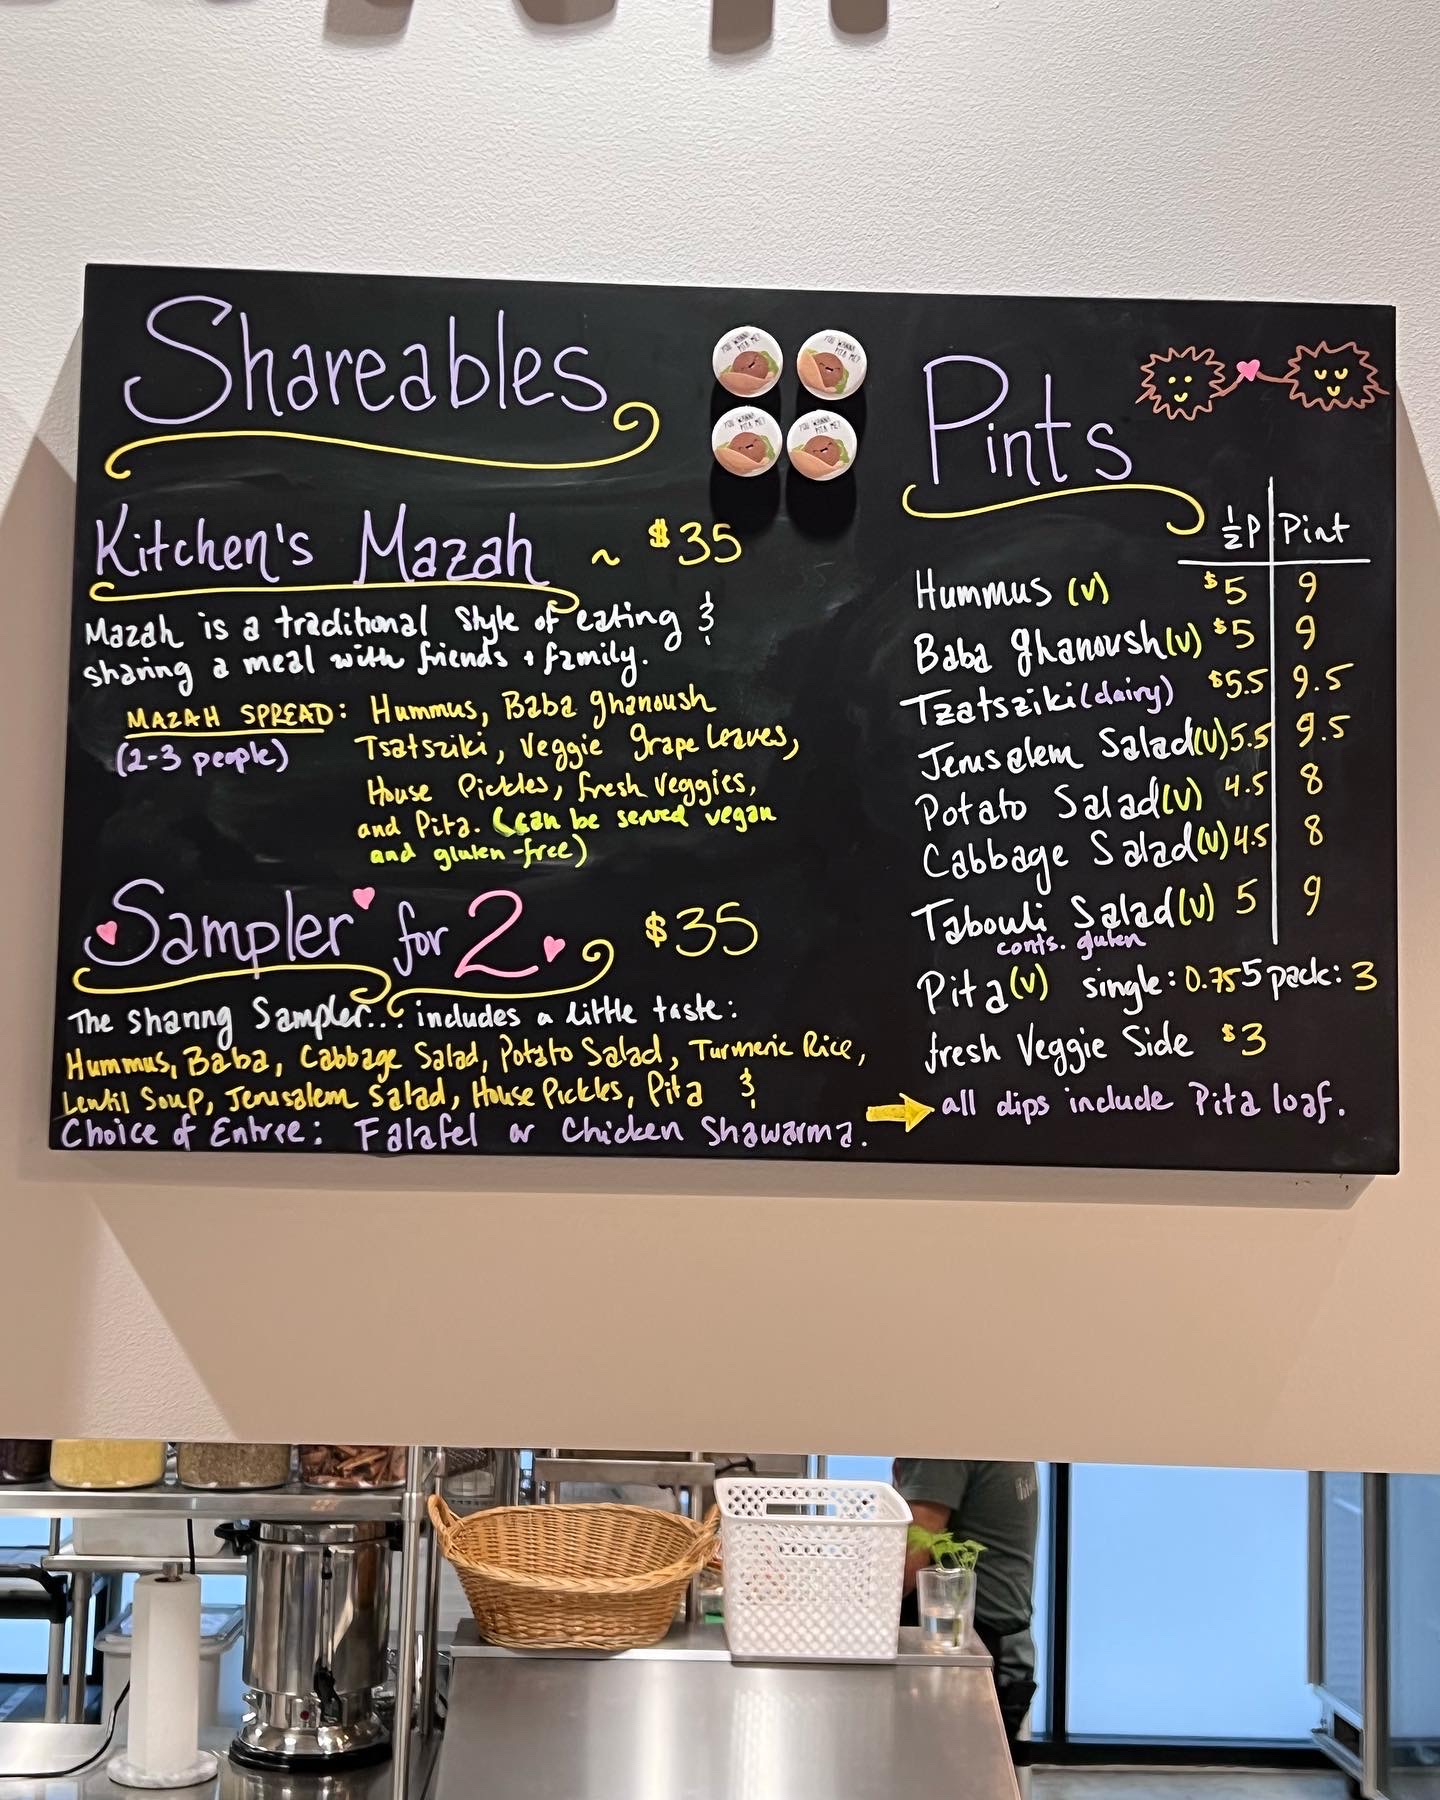 Shareables
YOU WANNA PITA ME?
YOU WANNA PITA ME?
YOU WANNA PITA ME?
YOU WANNA PITA ME?
Kitchen's Mazah ~ $35
Mazah is a traditional style of eating &
sharing a meal with friends + family.
MAZAH SPREAD: Hummus, Baba ghanoush
(2-3 people) Tsatsziki, Veggie grape leaves,
House Pickles, fresh veggies,
and Pita. (can be served vegan
and gluten-free)
Sampler for 2 $35
The sharing Sampler... includes a little taste:
Hummus, Baba, Cabbage Salad, Potato Salad, Turmeric Rice,
Lentil Soup, Jerusalem Salad, House Pickles, Pita &
Choice of Entree: Falafel or Chicken Shawarma.
Pints
½P Pint
Hummus (v) $5 9
Baba ghanoush (v) $5 9
Tzatsziki (dairy) $5.5 9.5
Jerusalem Salad (v) 5.5 9.5
Potato Salad (v) 4.5 8
Cabbage Salad (v) 4.5 8
Tabouli Salad (v) 5 9
conts. gluten
Pita (v) single: 0.75 5 pack: 3
fresh Veggie Side $3
all dips include Pita loaf.